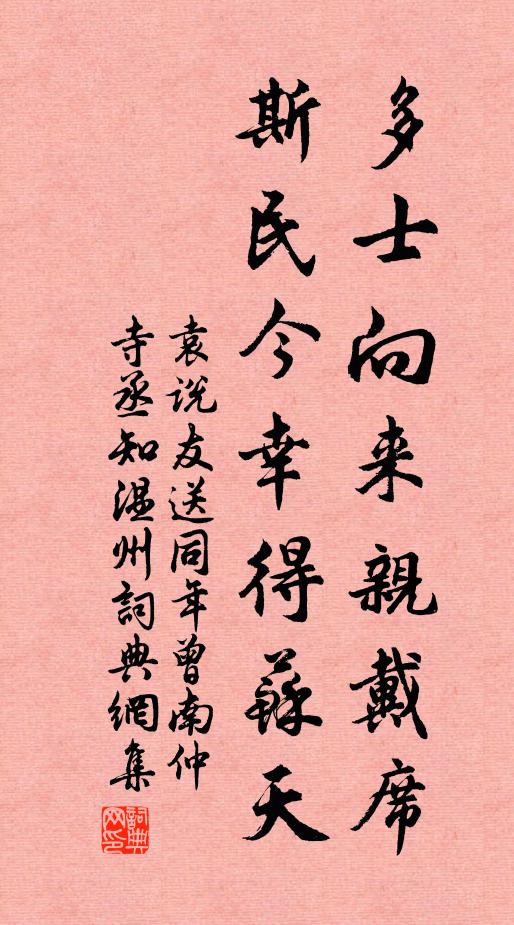 多士向来親戴席
斯民今幸得蘇天
袁说友送同年曾南仲
寺丞知温州詞典網集
詞典网印